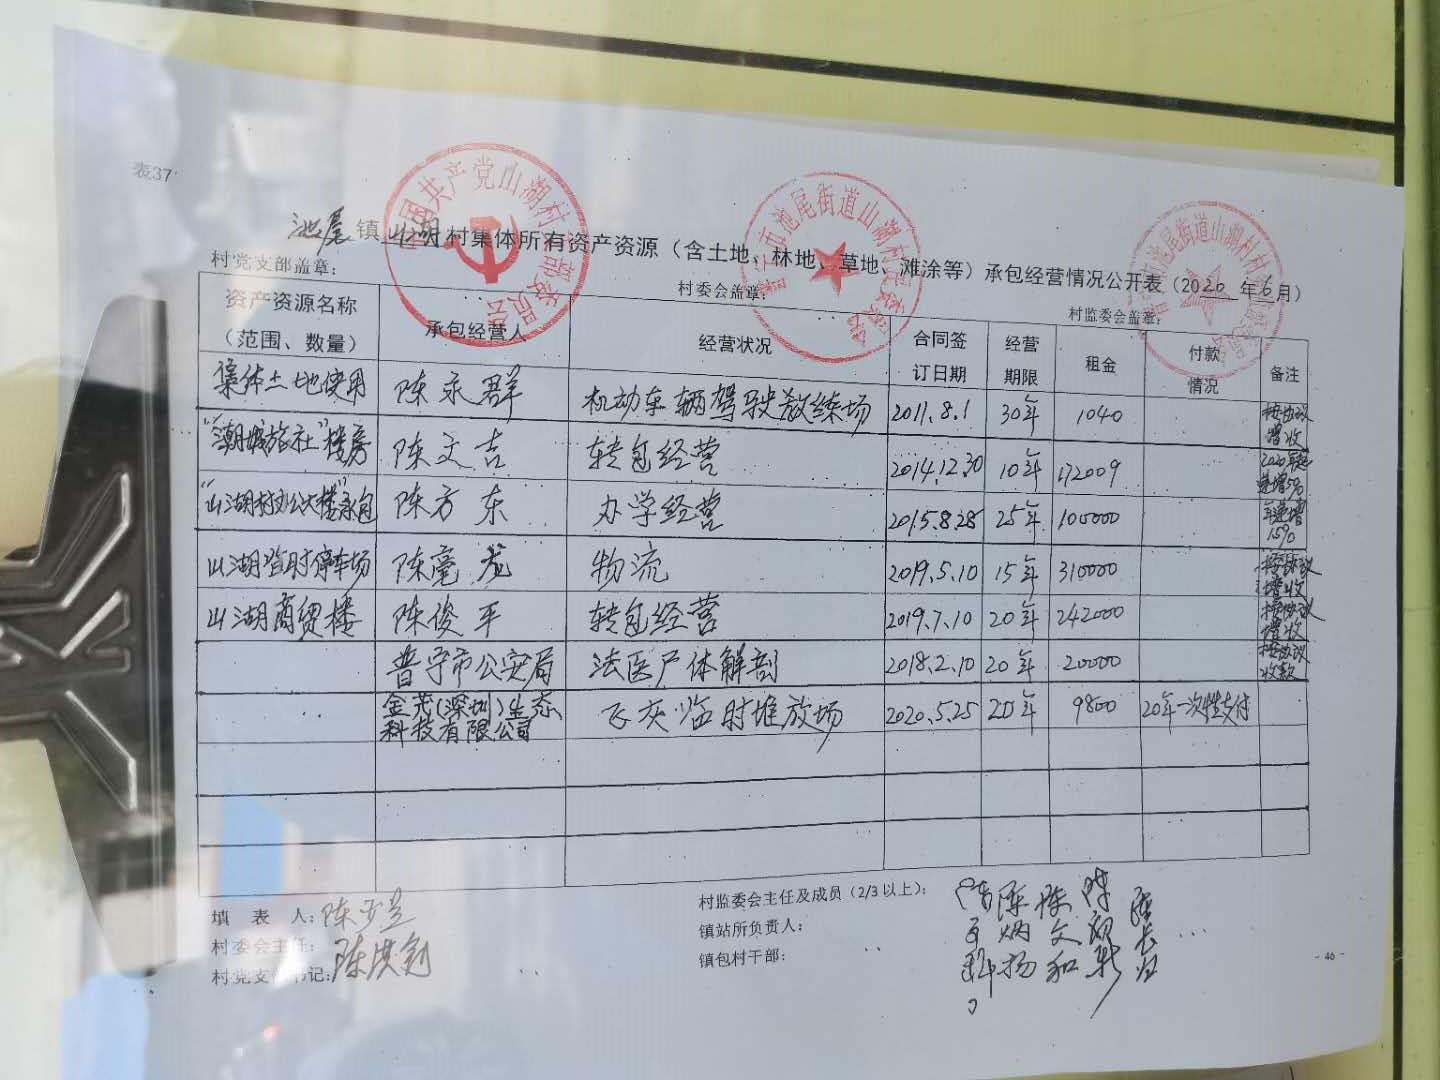 表37
池尾镇山湖村集体所有资产资源（含土地、林地、草地、滩涂等）承包经营情况公开表（2020年6月）
村党支部盖章： 村委会盖章： 村监委会盖章：
资产资源名称（范围、数量） 承包经营人 经营状况 合同签订日期 经营期限 租金 付款情况 备注
集体土地使用 陈永群 机动车辆驾驶教练场 2011.8.1 30年 1040 按协议增收
“潮城旅社”楼房 陈文吉 转包经营 2014.12.30 10年 172009 2020年起递增5%
“山湖村办公大楼”承包 陈方东 办学经营 2015.8.28 25年 100000 年递增15%
山湖临时停车场 陈亮龙 物流 2019.5.10 15年 310000 按协议增收
山湖商贸楼 陈俊平 转包经营 2019.7.10 20年 242000 按协议增收
普宁市公安局 法医尸体解剖 2018.2.10 20年 20000 按协议收款
金芳(深圳)生态科技有限公司 飞灰临时堆放场 2020.5.25 20年 9800 20年一次性支付
填 表 人：
村委会主任：
村党支部书记：陈洪钊
村监委会主任及成员（2/3以上）：
镇站所负责人：
镇包村干部：
- 46 -
中国共产党山湖村支部委员会
普宁市池尾街道山湖村民委员会
普宁市池尾街道山湖村村务监督委员会